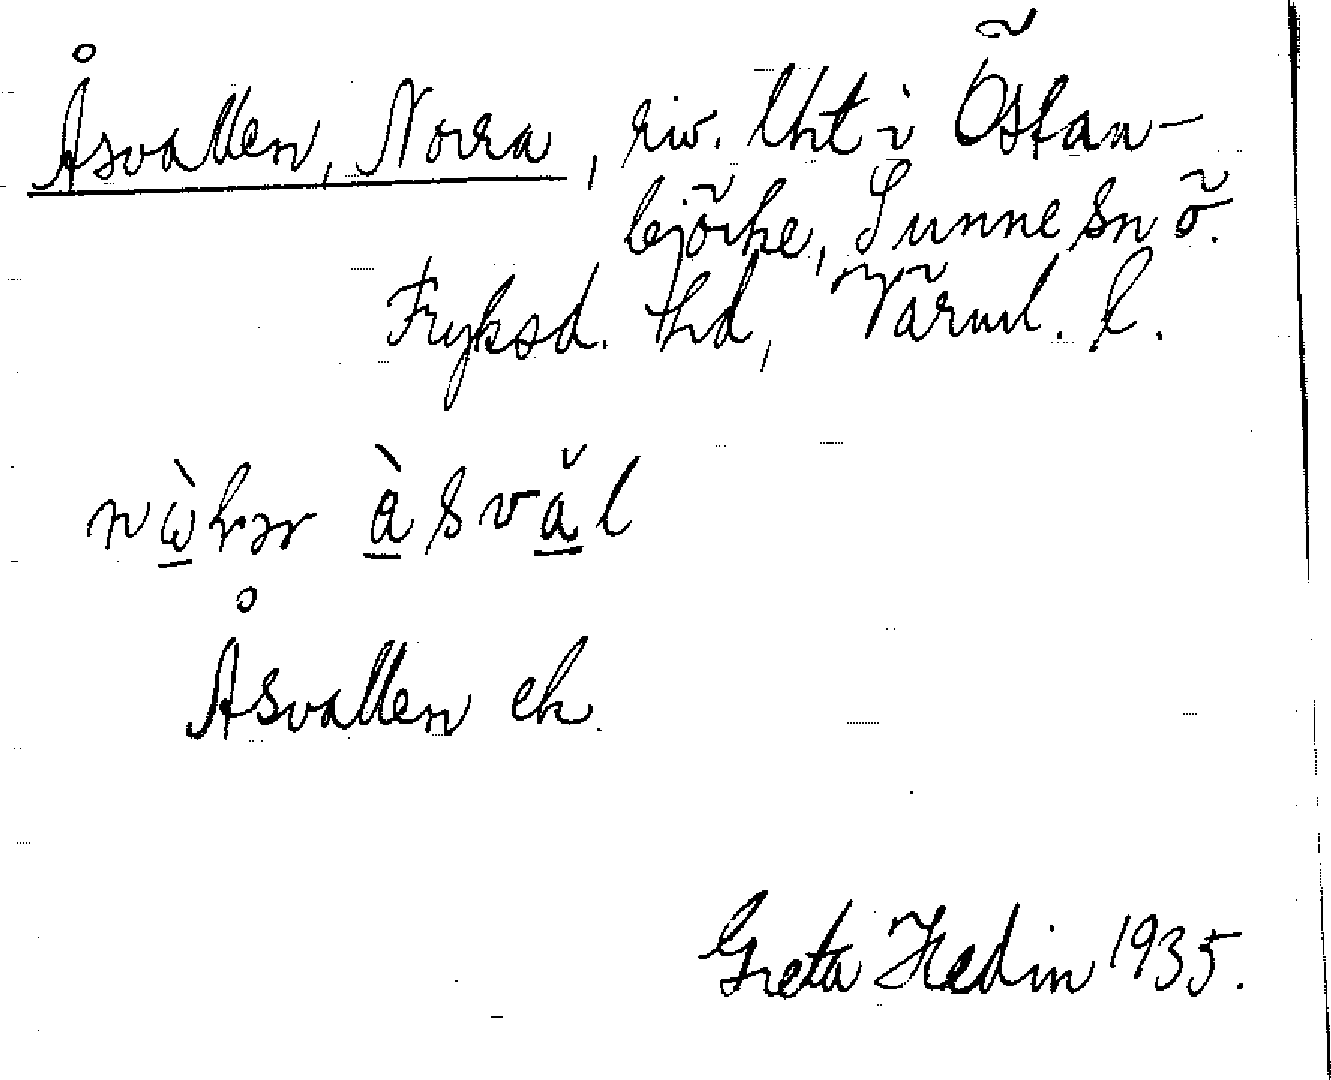 Åsvallen, Norra, riv. lht i Östan-
björke, Sunne sn ö.
Fryksd. hd, Värml. l.
àsvăl
Åsvallen ek.
Greta Hedin 1935.